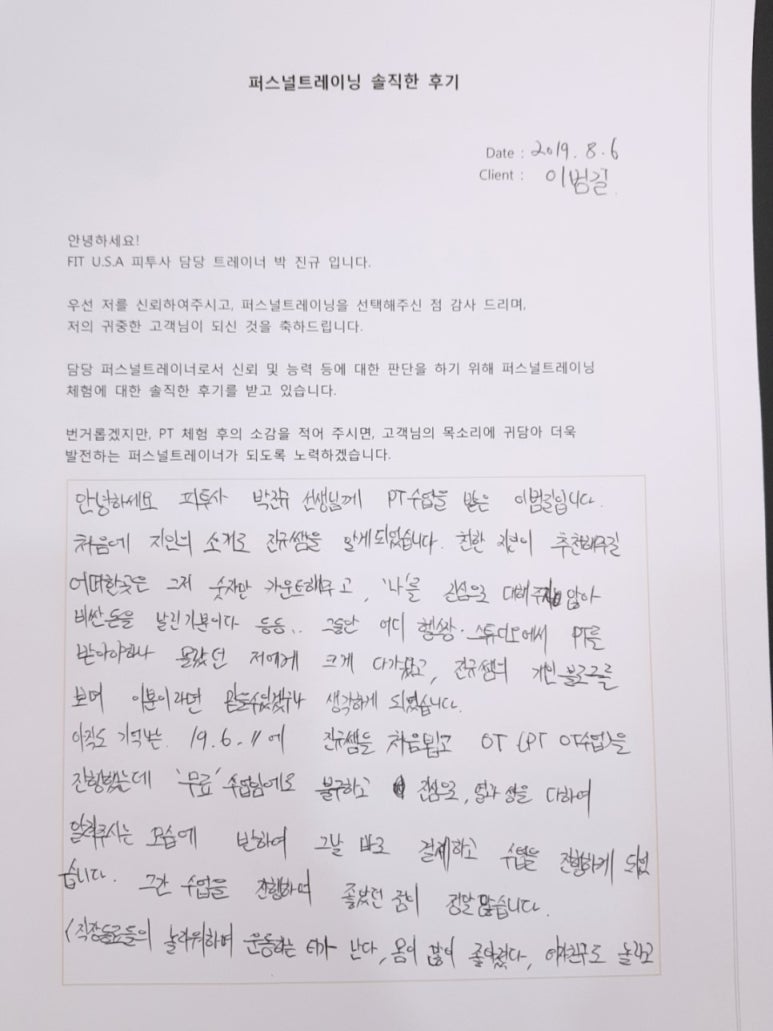 퍼스널트레이닝 솔직한 후기
Date : 2019. 8. 6
Client : 이범길
안녕하세요!
FIT U.S.A 피투사 담당 트레이너 박 진규 입니다.
우선 저를 신뢰하여주시고, 퍼스널트레이닝을 선택해주신 점 감사 드리며,
저의 귀중한 고객님이 되신 것을 축하드립니다.
담당 퍼스널트레이너로서 신뢰 및 능력 등에 대한 판단을 하기 위해 퍼스널트레이닝
체험에 대한 솔직한 후기를 받고 있습니다.
번거롭겠지만, PT 체험 후의 소감을 적어 주시면, 고객님의 목소리에 귀담아 더욱
발전하는 퍼스널트레이너가 되도록 노력하겠습니다.
안녕하세요 피투사 박진규 선생님께 PT수업을 받은 이범길입니다.
처음에 지인의 소개로 진규쌤을 알게되었습니다. 친한 지인이 추천해주길
어떠한곳은 그저 숫자만 카운트해주고, '나'를 진심으로 대해주지 않아
비싼돈을 날린기분이다 등등.. 그동안 어디 헬스장·스튜디오에서 PT를
받아야하나 몰랐던 저에게 크게 다가왔고, 진규쌤의 개인블로그를
보며 이분이라면 믿을수있겠구나 생각하게 되었습니다.
아직도 기억나는 19.6.11에 진규쌤을 처음뵙고 OT (PT OT수업)을
진행했는데 '무료' 수업임에도 불구하고 진심으로, 열과 성을 다하여
알려주시는 모습에 반하여 그날 바로 결제하고 수업을 진행하게 되었
습니다. 그간 수업을 진행하며 좋았던 점이 정말많습니다.
(직장동료들의 놀라워하며 운동하는 티가 난다, 몸이 많이 좋아졌다, 여자친구도 놀라고